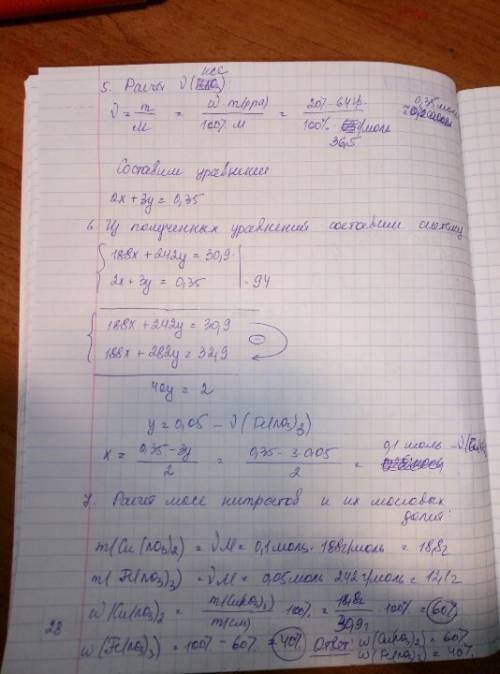 5. Расчет ν(HCl)
ν = m/M = ω · m(рра)/100% · M = 20% · 64г/100% · 36,5 г/моль = 0,35 моль
Составим уравнение
2x + 3y = 0,35
6. Из полученных уравнений составим систему
188x + 242y = 30,9
2x + 3y = 0,35 | · 94
188x + 242y = 30,9
188x + 282y = 32,9
40y = 2
y = 0,05 – ν(Fe(NO3)3)
x = 0,35 - 3y/2 = 0,35 - 3·0,05/2 = 0,1 моль
7. Расчет масс нитратов и их массовых
долей:
m(Cu(NO3)2) = νM = 0,1моль · 188г/моль = 18,8г
m(Fe(NO3)3) = νM = 0,05моль 242г/моль = 12,1г
ω(Cu(NO3)2 = m(Cu(NO3)2)/m(см) · 100% = 18,8г/30,9г · 100% = 60%
ω(Fe(NO3)3) = 100% - 60% = 40% Ответ: ω(Cu(NO3)2) = 60%
ω(Fe(NO3)3) = 40%
28